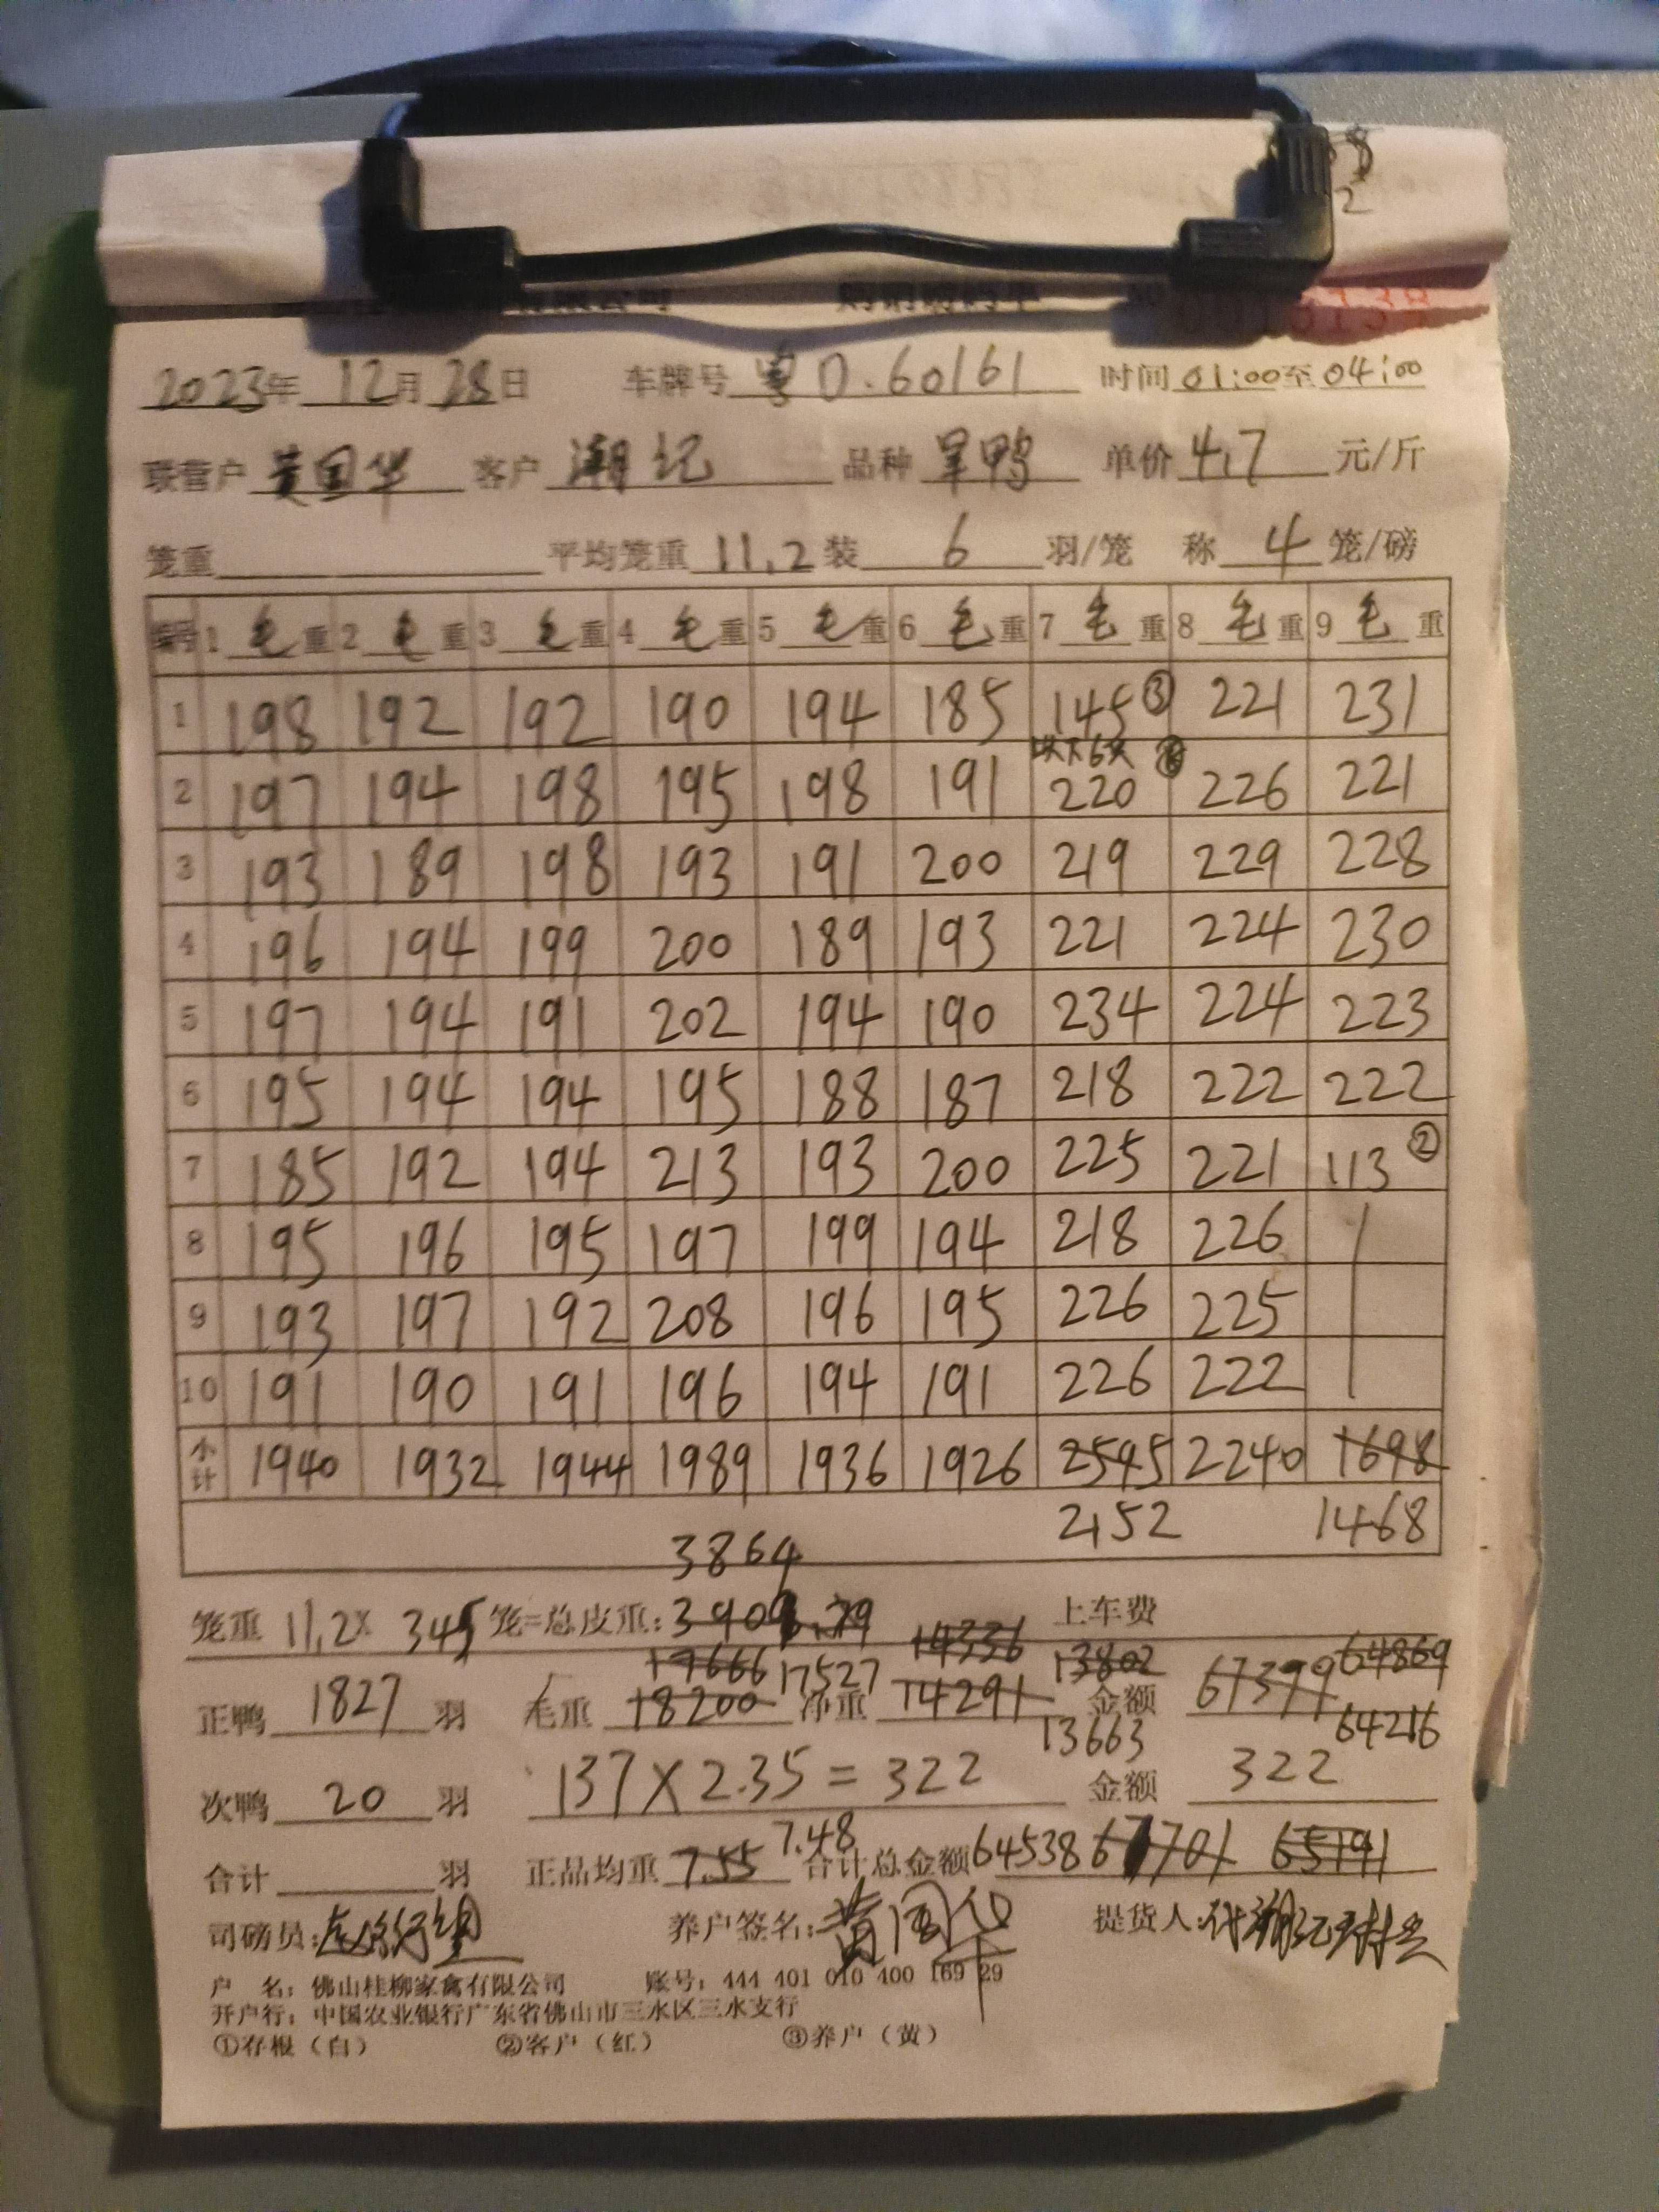 8
2
2023年 12月 28日 车牌号 粤D.60161 时间 01:00至04:00
联营户 黄国华 客户 潮记 品种 旱鸭 单价 4.7 元/斤
笼重 平均笼重 11.2 装 6 羽/笼 称 4 笼/磅
编号 1 毛重 2 毛重 3 毛重 4 毛重 5 毛重 6 毛重 7 毛重 8 毛重 9 毛重
1 198 192 192 190 194 185 145③ 221 231
以下6只
2 197 194 198 195 198 191 220 226 221
3 193 189 198 193 191 200 219 229 228
4 196 194 199 200 189 193 221 224 230
5 197 194 191 202 194 190 234 224 223
6 195 194 194 195 188 187 218 222 222
7 185 192 194 213 193 200 225 221 113②
8 195 196 195 197 199 194 218 226
9 193 197 192 208 196 195 226 225
10 191 190 191 196 194 191 226 222
小计 1940 1932 1944 1989 1936 1926 2545 2240 1698
2152 1468
3864
笼重 11.2× 345 笼=总皮重: 上车费
17666 17527 14336 13802 64869
正鸭 1827 羽 毛重 18200 净重 14291 金额 67379
13663 64216
次鸭 20 羽 137×2.35=322 金额 322
7.48
合计 羽 正品均重 7.55 合计总金额 64538 65191
司磅员: 养户签名: 黄国华 提货人:
户 名: 佛山桂柳家禽有限公司 账号: 444 401 010 400 169 29
开户行: 中国农业银行广东省佛山市三水区三水支行
①存根（白） ②客户（红） ③养户（黄）